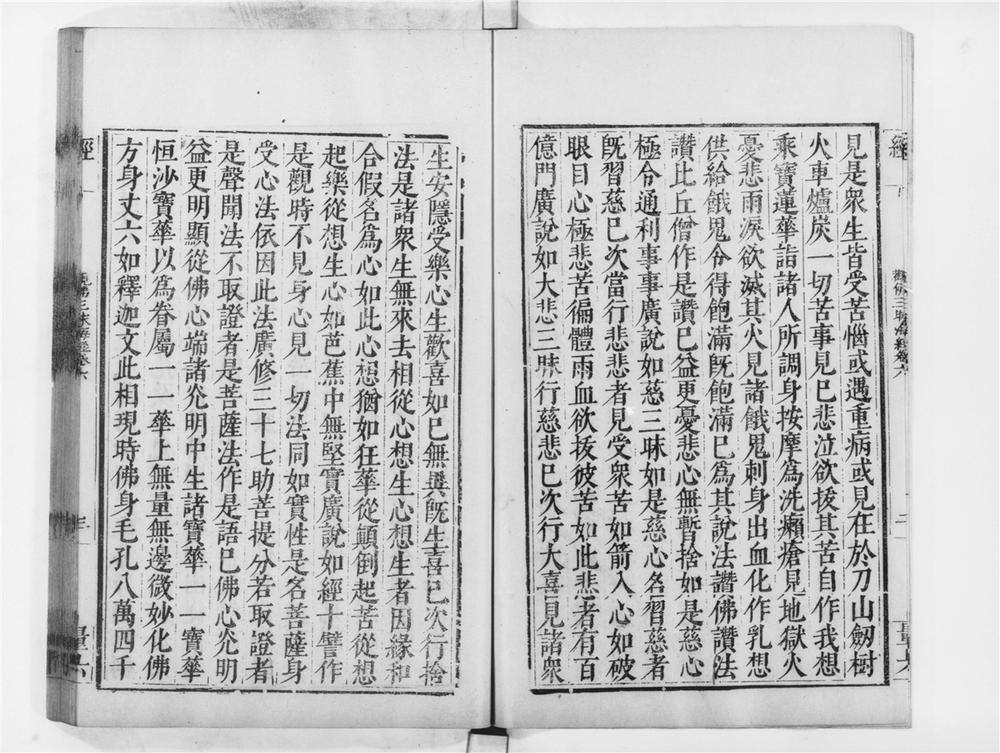 見是衆生皆受苦惱或遇重病或見在於刀山劒樹
火車爐炭一切苦事見已悲泣欲拔其苦自作我想
乘寶蓮華詣諸人所調身按摩為洗癩瘡見地獄火
憂悲雨淚欲滅其火見諸餓鬼刺身出血化作乳想
供給餓鬼令得飽滿既飽滿已為其說法讚佛讚法
讚比丘僧作是讚已益更憂悲心無暫捨如是慈心
極令通利事事廣說如慈三昧如是慈心名習慈者
既習慈已次當行悲悲者見受衆苦如箭入心如破
眼目心極悲苦徧體雨血欲拔彼苦如此悲者有百
億門廣說如大悲三昧行慈悲已次行大喜見諸衆
生安隱受樂心生歡喜如已無異既生喜已次行捨
法是諸衆生無來去相從心想生心想生者因緣和
合假名為心如此心想猶如狂華從顛倒起苦從想
起樂從想生心如芭蕉中無堅實廣說如經十譬作
是觀時不見身心見一切法同如實性是名菩薩身
受心法依因此法廣修三十七助菩提分若取證者
是聲聞法不取證者是菩薩法作是語已佛心光明
益更明顯從佛心端諸光明中生諸寶華一一寶華
恒沙寶華以為眷屬一一華上無量無邊微妙化佛
方身丈六如釋迦文此相現時佛身毛孔八萬四千
經
三